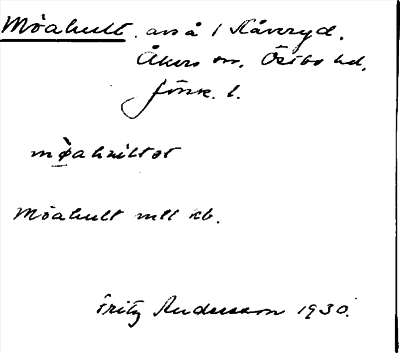 Möahult, avs å 1 Kåvsryd,
Åkers sn, Östbo hd,
Jönk. l.
møahɯltət
Möahult mtl kb.
Fritz Andersson 1930.